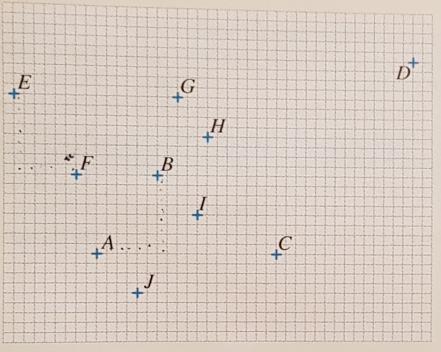 D
E
G
H
F
B
I
A
C
J